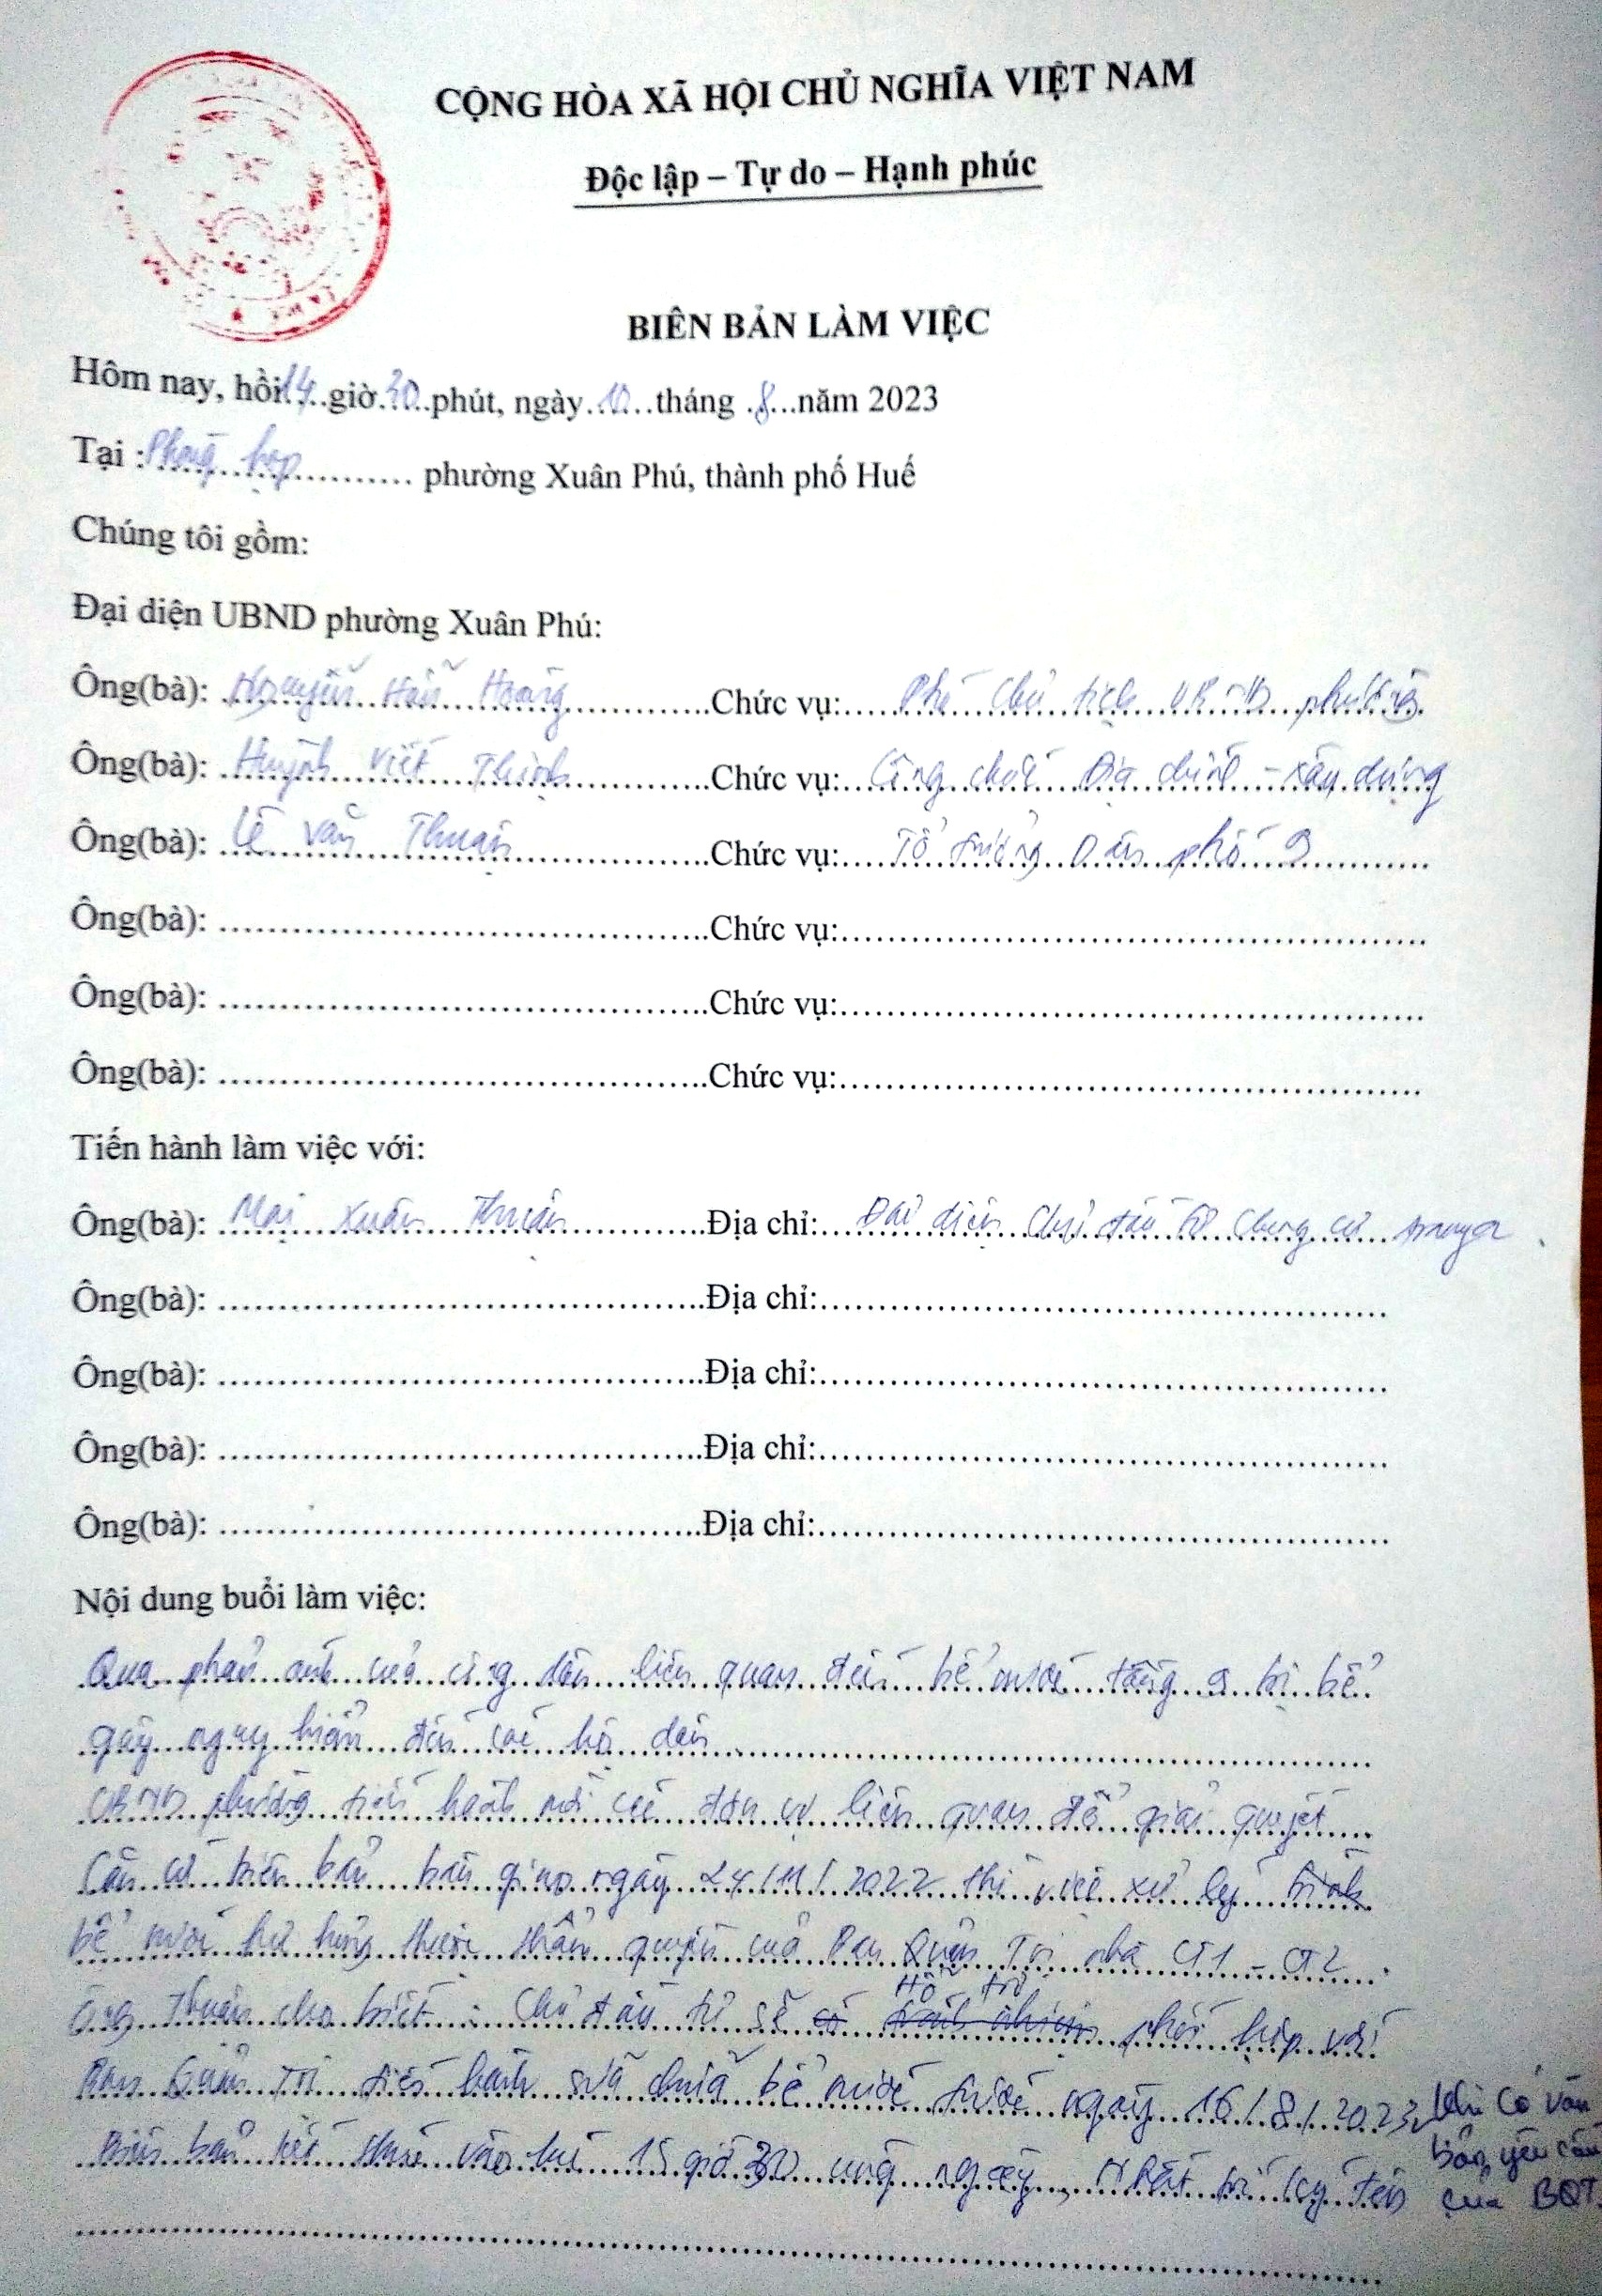 CỘNG HÒA XÃ HỘI CHỦ NGHĨA VIỆT NAM
Độc lập – Tự do – Hạnh phúc
BIÊN BẢN LÀM VIỆC
Hôm nay, hồi 14 giờ 30 phút, ngày 10 tháng 8 năm 2023
Tại : Phòng họp phường Xuân Phú, thành phố Huế
Chúng tôi gồm:
Đại diện UBND phường Xuân Phú:
Ông(bà): Nguyễn Hoàng Chức vụ: Phó Chủ tịch UBND phường
Ông(bà): Huỳnh Viết Thịnh Chức vụ: Công chức Địa chính - xây dựng
Ông(bà): Lê Văn Thuận Chức vụ: Tổ trưởng Dân phố 9
Ông(bà): Chức vụ:
Ông(bà): Chức vụ:
Ông(bà): Chức vụ:
Tiến hành làm việc với:
Ông(bà): Mai Xuân Thuận Địa chỉ: Đại diện Chủ đầu tư Chung cư Aranya
Ông(bà): Địa chỉ:
Ông(bà): Địa chỉ:
Ông(bà): Địa chỉ:
Ông(bà): Địa chỉ:
Nội dung buổi làm việc:
Qua phản ánh của công dân liên quan đến bể nước tầng 9 bị bể
gây nguy hiểm đến các hộ dân
UBND phường tiến hành mời các đơn vị liên quan để giải quyết
Căn cứ biên bản bàn giao ngày 24/11/2022 thì việc xử lý
bể nước hư hỏng thuộc thẩm quyền của Ban Quản Trị nhà CT1 - CT2.
Ông Thuận cho biết: Chủ đầu tư sẽ hỗ trợ phối hợp với
Ban Quản Trị tiến hành sửa chữa bể nước trước ngày 16/8/2023 khi có văn
bản yêu cầu
của BQT.
Biên bản kết thúc vào lúc 15 giờ 30 cùng ngày, nhất trí ký tên